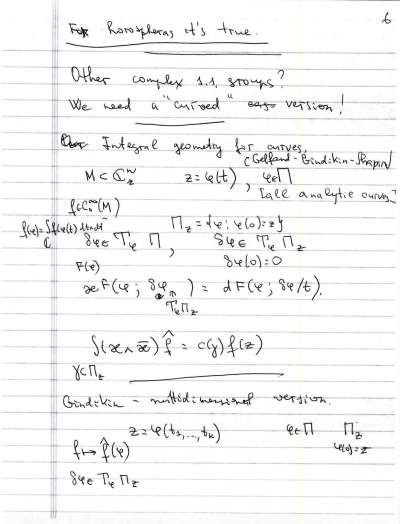 6
For horospheres it's true.
Other complex s.s. groups?
We need a "curved" version!
Integral geometry for curves,
(Gelfand-Gindikin-Shapiro)
M ⊂ ℂⁿ_z z = φ(t), φ∈Π
[all analytic curves?
f∈C₀^∞(M)
f̂(φ) = ∫f(φ(t)) dt∧dt̄ Π_z = {φ; φ(0)=z}
ℂ δφ ∈ T_φ Π, δφ ∈ T_φ Π_z
F(φ) δφ(0)=0
æF(φ; δφ) = dF(φ; δφ/t).
T_φ Π_z
∫(æ∧ǣ) f̂ = c(γ) f(z)
γ⊂Π_z
Gindikin - multidimensional version.
z = φ(t₁,...,t_k) φ∈Π Π_z
f ↦ f̂(φ) φ(0)=z
δφ ∈ T_φ Π_z